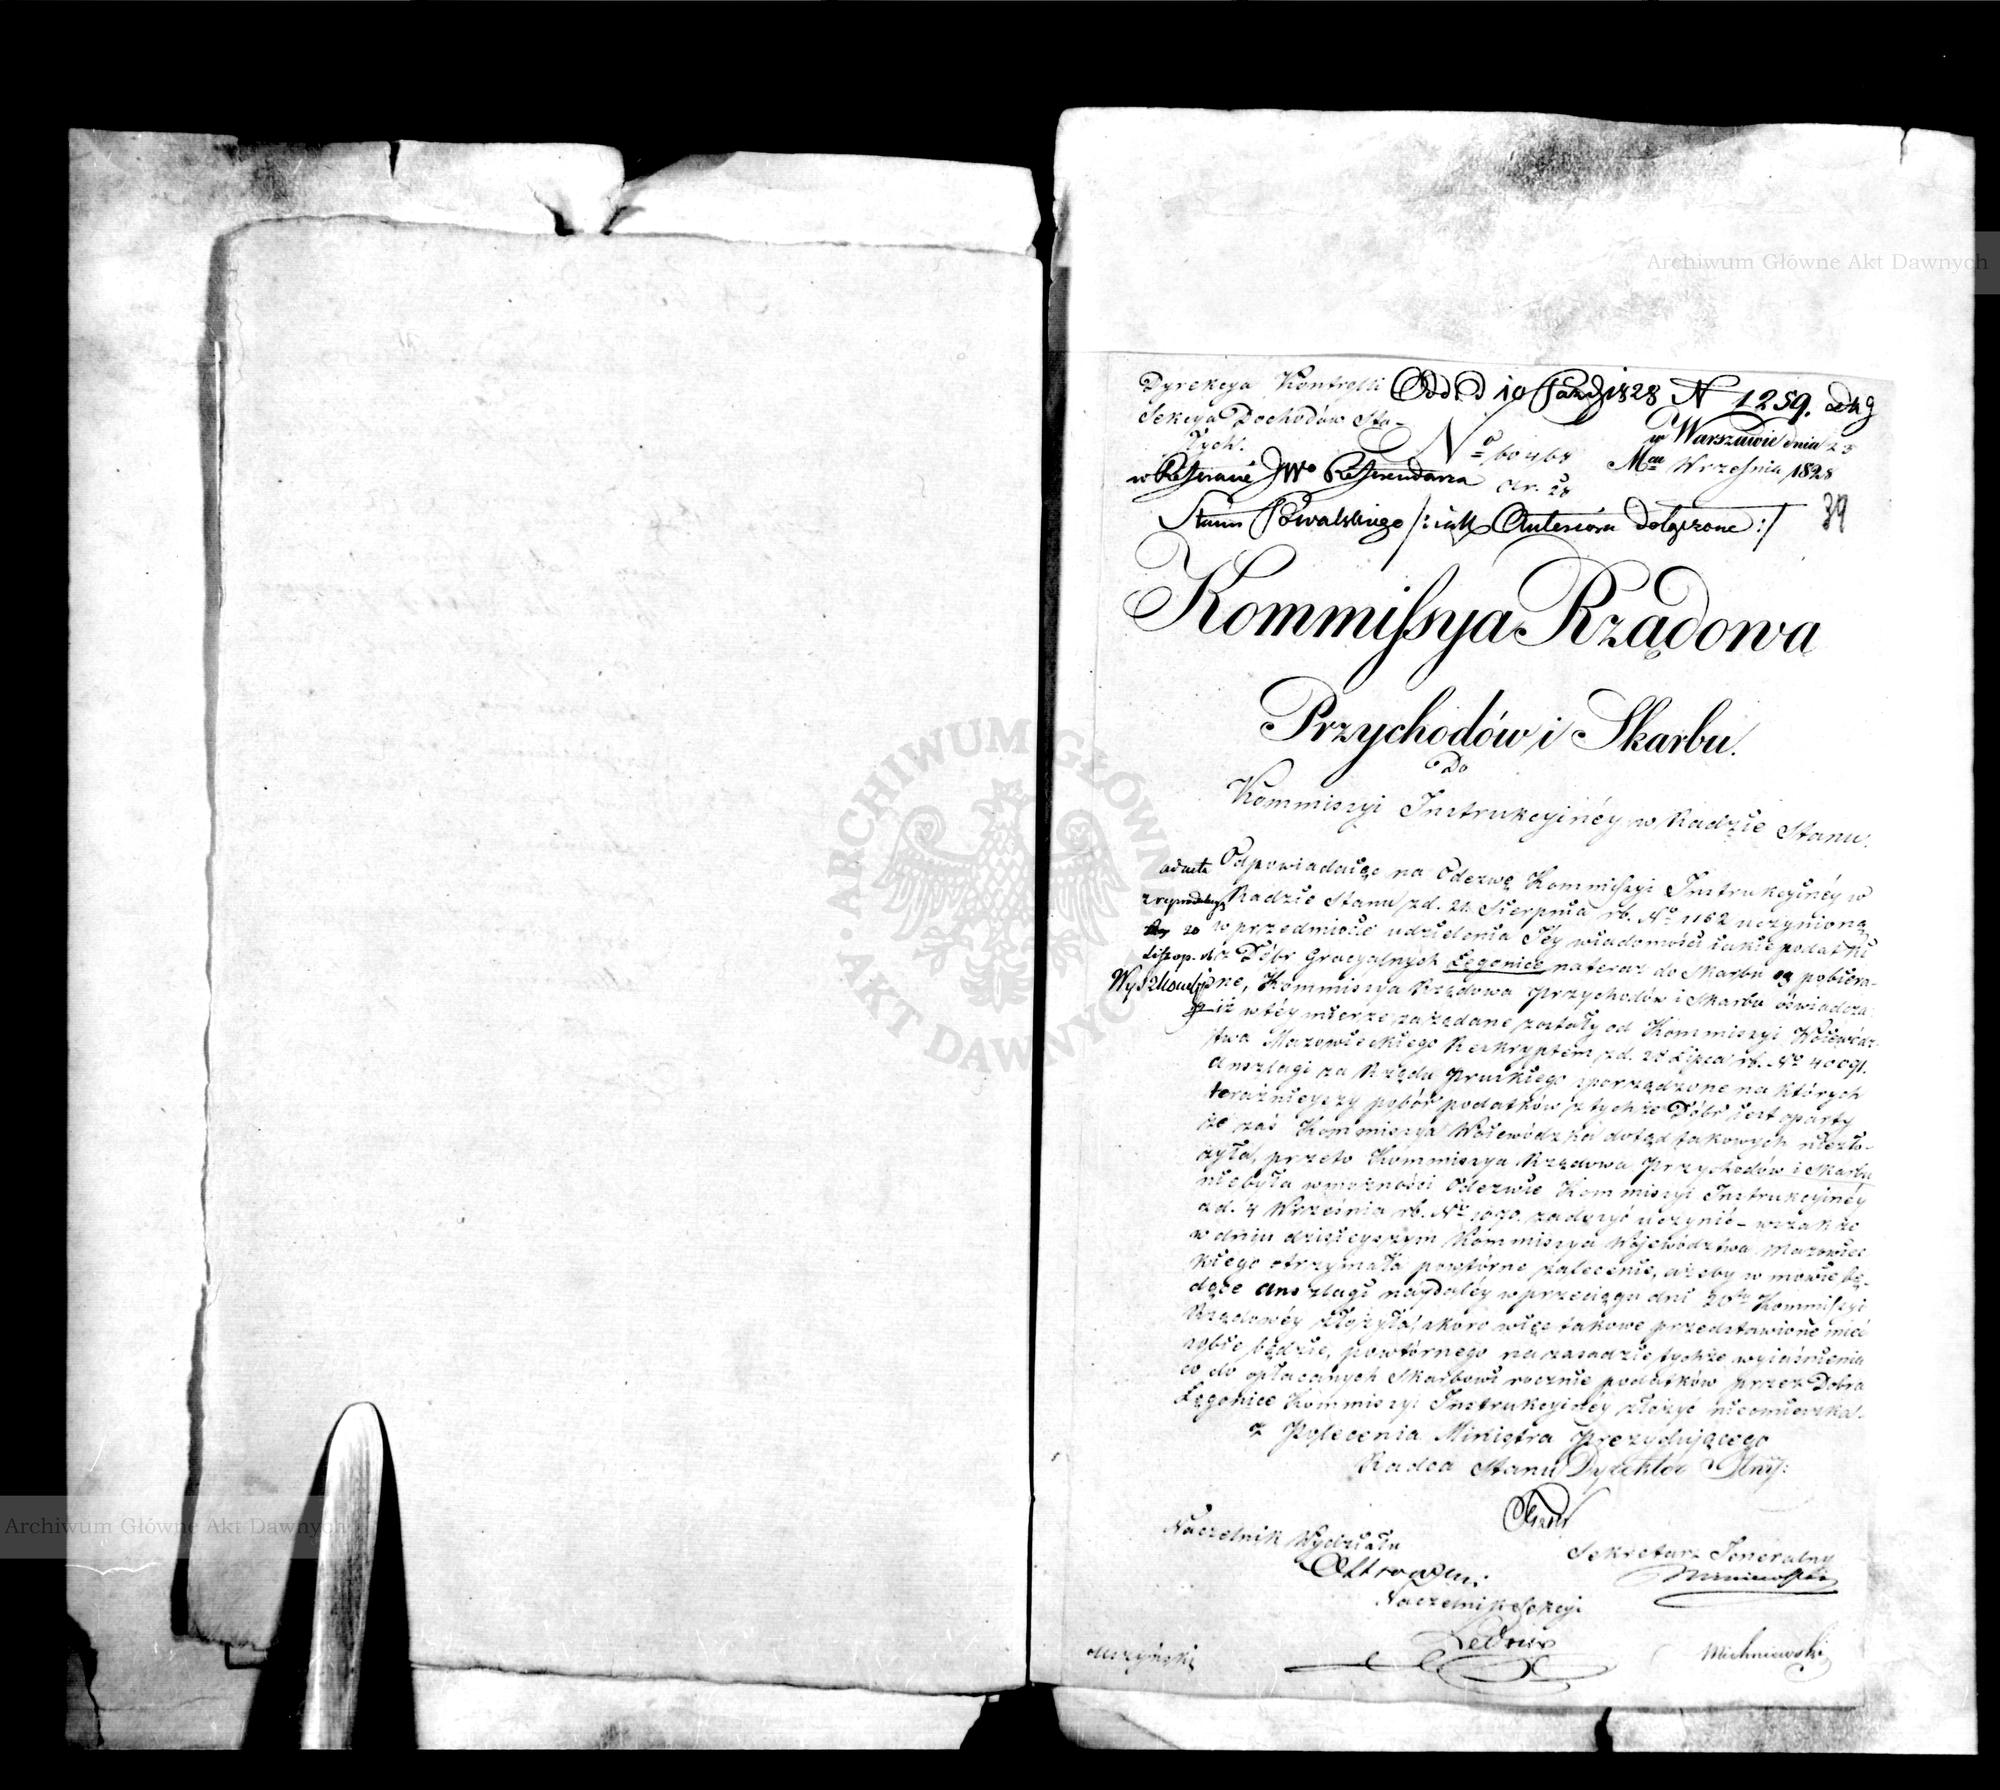 Archiwum Główne Akt Dawnych
Dyrekcya Kontrolli
Odd. D 10 Paźdz 1828 N 1259.
Sekcya Dochodów Sta-
łych.
w Warszawie dnia 23
No 60468
Mca Września 1828
w Referacie JWo Referendarza
Stanu Kowalskiego /: iak Anteriora dołączone :/
39
Kommissya Rządowa
Przychodów i Skarbu.
Do
Kommissyi Instrukcyinéy w Radzie Stanu.
Odpowiadaiąc na Odezwę Kommissyi Instrukcyinéy w
Radzie Stanu z d. 21 Sierpnia rb. No 1162 uczynioną
w przedmiocie udzielenia Jéy wiadomości iakie podatki
z Dóbr Gracyalnych Łęgonice na teraz do Skarbu są pobiera-
ne, Kommissya Rządowa Przychodów i Skarbu oświadcza
iż w téy mierze zażądane zostały od Kommissyi Woiewódz-
twa Mazowieckiego Reskryptem z d. 28 Lipca rb. No 40091.
Anszlagi za Rządu Pruskiego sporządzone na których
teraźnieyszy pobór podatków z tychże Dóbr iest oparty
że zaś Kommissya Woiewódzka dotąd takowych niezło-
żyła, przeto Kommissya Rządowa Przychodów i Skarbu
niebyła w możności Odezwie Kommissyi Instrukcyinéy
z d. 4 Września rb. No 1070. zadosyć uczynić – wszakże
w dniu dzisieyszym Kommissya Województwa Mazowiec
kiego otrzymała powtórne zalecenie, ażeby w mowie bę-
dące Anszlagi naydaléy w przeciągu dni 20tu Kommissyi
Rządowéy złożyła, skoro więc takowe przedstawione mieć
sobie będzie, powtórnego na zasadzie tychże wyiaśnienia
co do opłacanych Skarbowi rocznie podatków przez Dobra
Łęgonice Kommissyi Instrukcyinéy złożyć nieomieszka.
z Polecenia Ministra Prezyduiącego
Radca Stanu Dyrektor
Naczelnik Wydziału
Sekretarz Jeneralny
Naczelnik Sekcyi
Michniewski
ARCHIWUM GŁÓWNE AKT DAWNYCH
Archiwum Główne Akt Dawnych